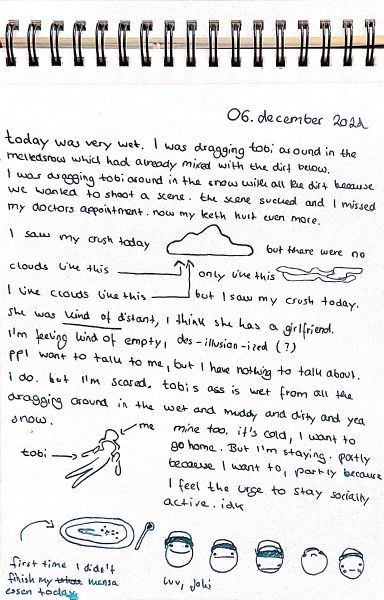 06. december 2021
today was very wet. I was dragging tobi around in the
meltedsnow which had already mixed with the dirt below.
I was dragging tobi around in the snow with all the dirt because
we wanted to shoot a scene. the scene sucked and I missed
my doctors appointment. now my teeth hurt even more.
I saw my crush today
but there were no
clouds like this
only like this
I like clouds like this
but I saw my crush today.
she was kind of distant, I think she has a girlfriend.
I'm feeling kind of empty, des-illusion-ized (?)
ppl want to talk to me, but I have nothing to talk about.
I do. but I'm scared. tobis ass is wet from all the
dragging around in the wet and muddy and dirty and yea
snow.
me
mine too. it's cold, I want to
go home. But I'm staying. partly
because I want to, partly because
I feel the urge to stay socially
active. idk
tobi
first time I didn't
finish my mensa
essen today
luv, joki